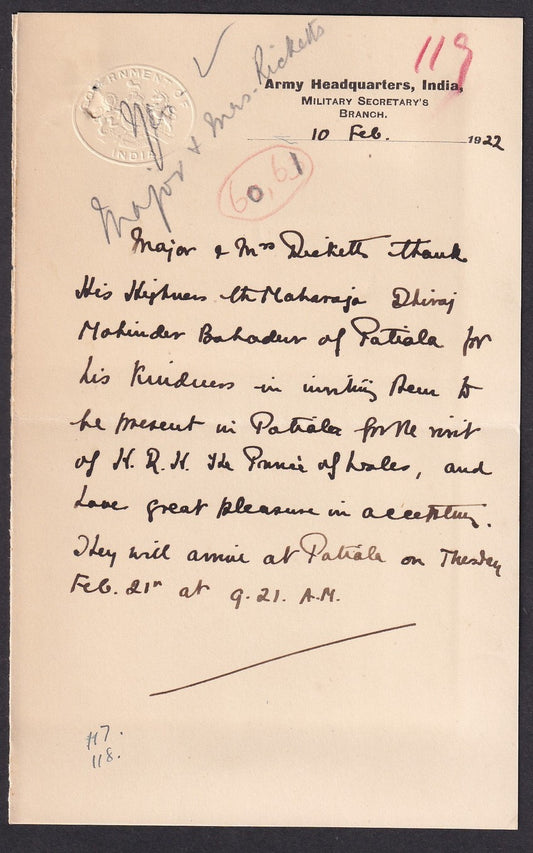 119
GOVERNMENT OF INDIA
Yes
Major & Mrs. Ricketts
Army Headquarters, India,
MILITARY SECRETARY'S
BRANCH.
10 Feb. 1922
60, 61
Major & Mrs Ricketts thank
His Highness the Maharaja Dhiraj
Mohinder Bahadur of Patiala for
his kindness in inviting them to
be present in Patiala for the visit
of H. R. H. The Prince of Wales, and
have great pleasure in accepting.
They will arrive at Patiala on Tuesday
Feb. 21st at 9.21. A.M.
117.
118.